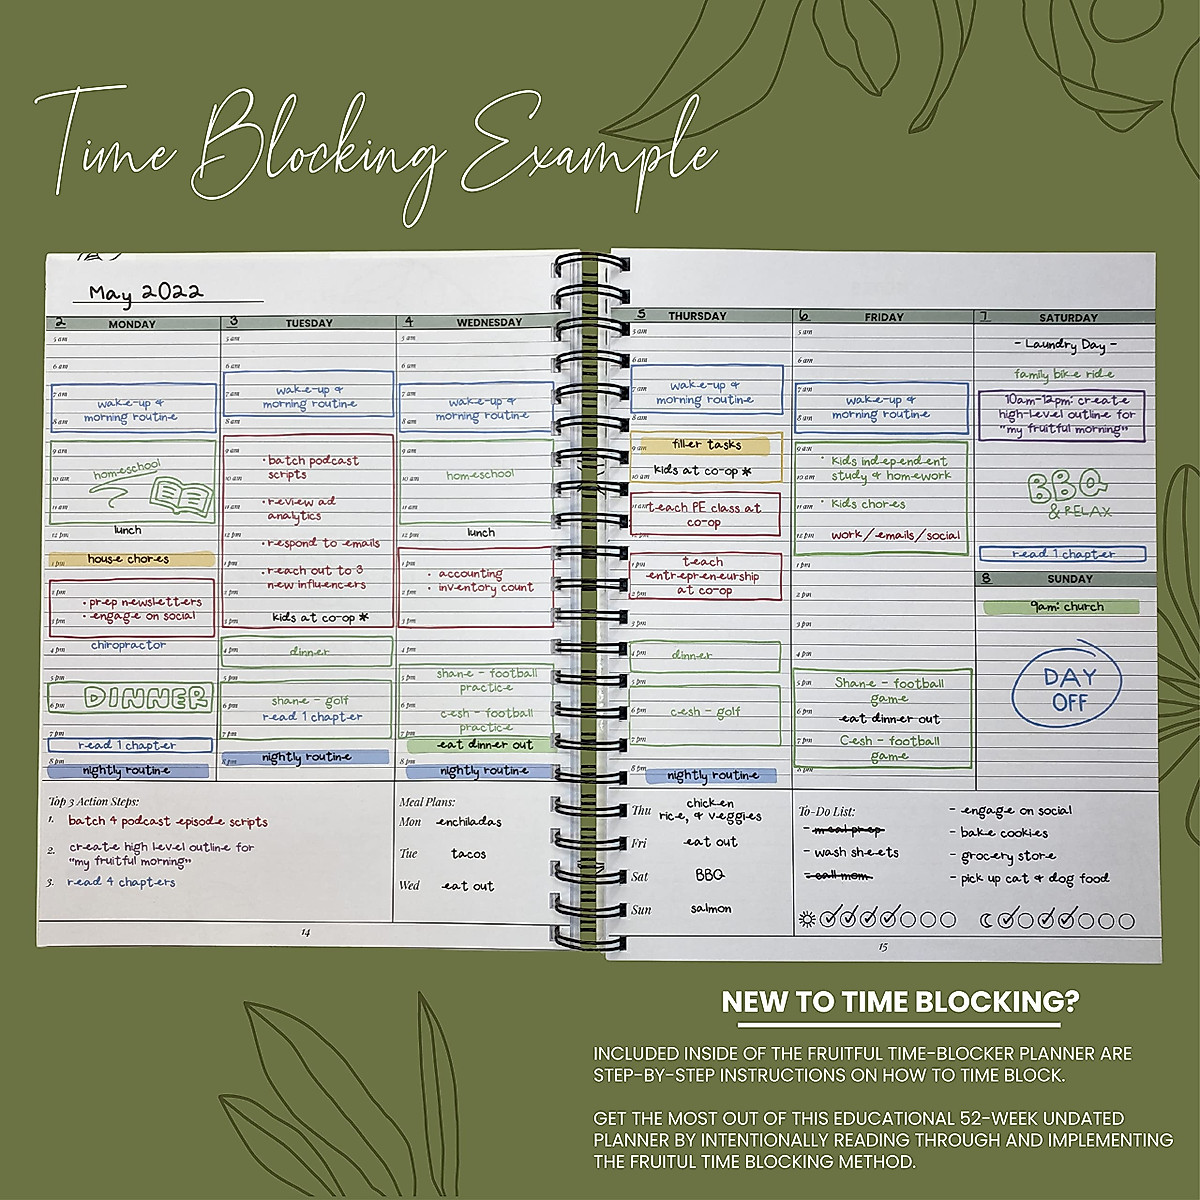 Time Blocking Example
May 2022
2 MONDAY
5 am
6 am
7 am
wake-up &
morning routine
8 am
9 am
homeschool
10 am
11 am
lunch
12 pm
house chores
1 pm
2 pm
• prep newsletters
• engage on social
3 pm
chiropractor
4 pm
5 pm
DINNER
6 pm
7 pm
read 1 chapter
8 pm
nightly routine
3 TUESDAY
5 am
6 am
7 am
wake-up &
morning routine
8 am
9 am
• batch podcast
scripts
10 am
• review ad
analytics
11 am
12 pm
• respond to emails
1 pm
• reach out to 3
new influencers
2 pm
kids at co-op *
3 pm
4 pm
dinner
5 pm
shane - golf
6 pm
read 1 chapter
7 pm
8 pm
nightly routine
4 WEDNESDAY
5 am
6 am
7 am
wake-up &
morning routine
8 am
9 am
homeschool
10 am
11 am
lunch
12 pm
1 pm
• accounting
• inventory count
2 pm
3 pm
4 pm
shane - football
practice
5 pm
6 pm
cesh - football
practice
7 pm
eat dinner out
8 pm
nightly routine
5 THURSDAY
5 am
6 am
7 am
wake-up &
morning routine
8 am
9 am
filler tasks
kids at co-op *
10 am
11 am
teach PE class at
co-op
12 pm
1 pm
teach
entrepreneurship
at co-op
2 pm
3 pm
4 pm
dinner
5 pm
6 pm
cesh - golf
7 pm
8 pm
nightly routine
6 FRIDAY
5 am
6 am
7 am
wake-up &
morning routine
8 am
9 am
• Kids independent
study & homework
10 am
11 am
• Kids chores
12 pm
work/emails/social
1 pm
2 pm
3 pm
4 pm
5 pm
Shane - football
game
6 pm
eat dinner out
7 pm
Cesh - football
game
8 pm
7 SATURDAY
- Laundry Day -
family bike ride
10am-12pm: create
high-level outline for
"my fruitful morning"
BBQ
& RELAX
read 1 chapter
8 SUNDAY
9am: church
DAY
OFF
Top 3 Action Steps:
1. batch 4 podcast episode scripts
2. create high level outline for
"my fruitful morning"
3. read 4 chapters
Meal Plans:
Mon enchiladas
Tue tacos
Wed eat out
Thu chicken
rice, & veggies
Fri eat out
Sat BBQ
Sun salmon
To-Do List:
- meal prep
- wash sheets
- call mom
- engage on social
- bake cookies
- grocery store
- pick up cat & dog food
14
15
NEW TO TIME BLOCKING?
INCLUDED INSIDE OF THE FRUITFUL TIME-BLOCKER PLANNER ARE
STEP-BY-STEP INSTRUCTIONS ON HOW TO TIME BLOCK.
GET THE MOST OUT OF THIS EDUCATIONAL 52-WEEK UNDATED
PLANNER BY INTENTIONALLY READING THROUGH AND IMPLEMENTING
THE FRUITUL TIME BLOCKING METHOD.